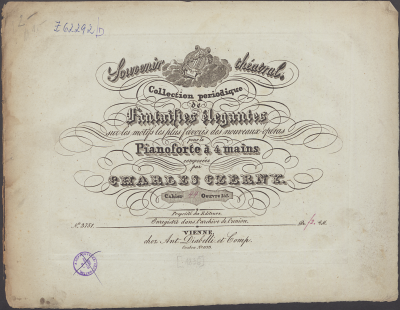 Z 62292/D
Souvenir théatral.
Collection periodique
de
Fantaisies élégantes
sur les motifs les plus favoris des nouveaux opéras
pour le
Pianoforte à 4 mains
composées
par
CHARLES CZERNY.
Cahier Oeuvre
Propriété des Editeurs.
Enregistré dans l'archive de l'union.
VIENNE,
chez Ant. Diabelli et Comp.